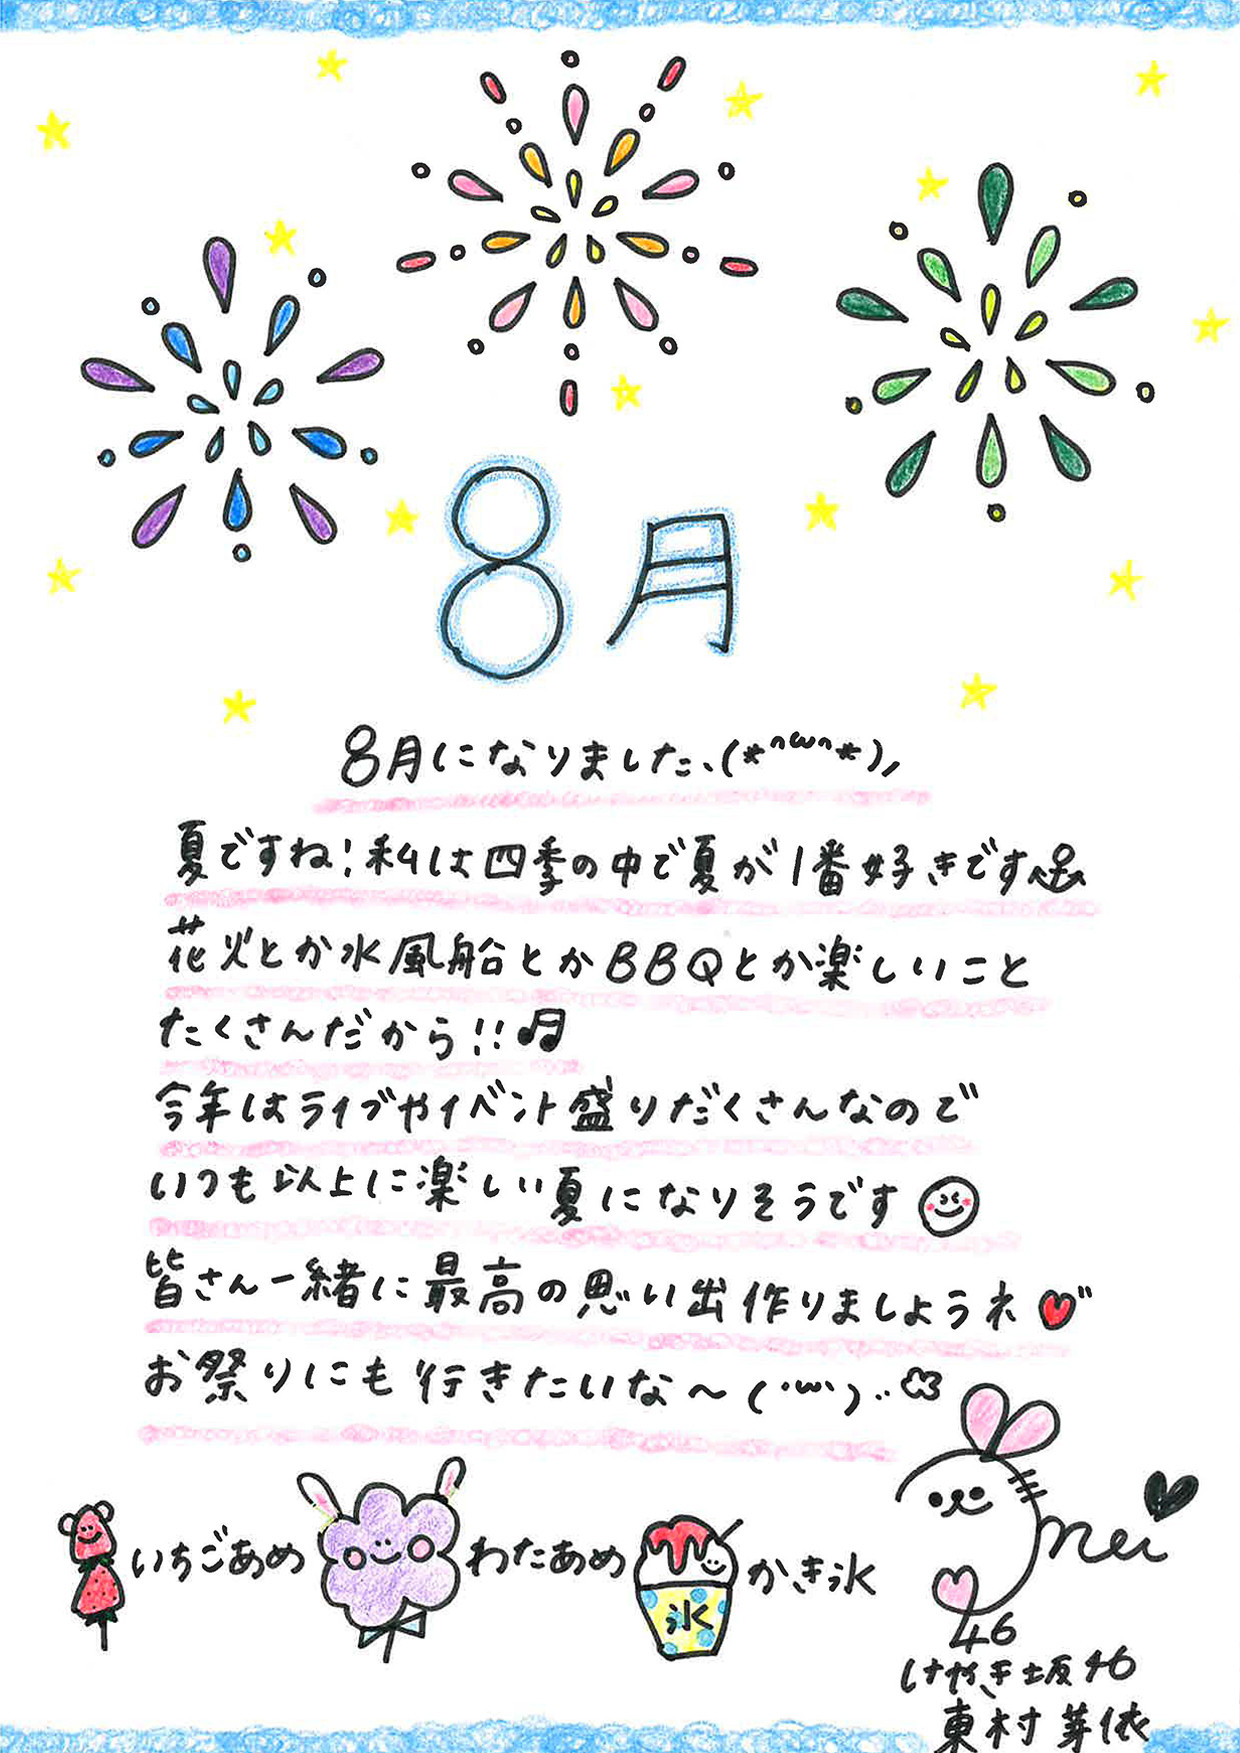 8月
8月になりました、(*^ω^*)ﾉ
夏ですね!私は四季の中で夏が1番好きです
花火とか水風船とかBBQとか楽しいこと
たくさんだから!!♫
今年はライブやイベント盛りだくさんなので
いつも以上に楽しい夏になりそうです
皆さん一緒に最高の思い出作りましょうネ
お祭りにも行きたいな〜(´ω`)..
いちごあめ わたあめ かき氷
氷
mei
46
けやき坂46
東村芽依